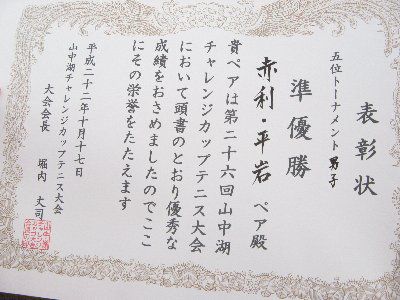 表彰状
五位トーナメント男子
準優勝
赤利・平岩 ペア殿
貴ペアは第二十六回山中湖
チャレンジカップテニス大会
において頭書のとおり優秀な
成績をおさめましたのでここ
にその栄誉をたたえます
平成二十二年十月十七日
山中湖チャレンジカップテニス大会
大会会長 堀内 丈司